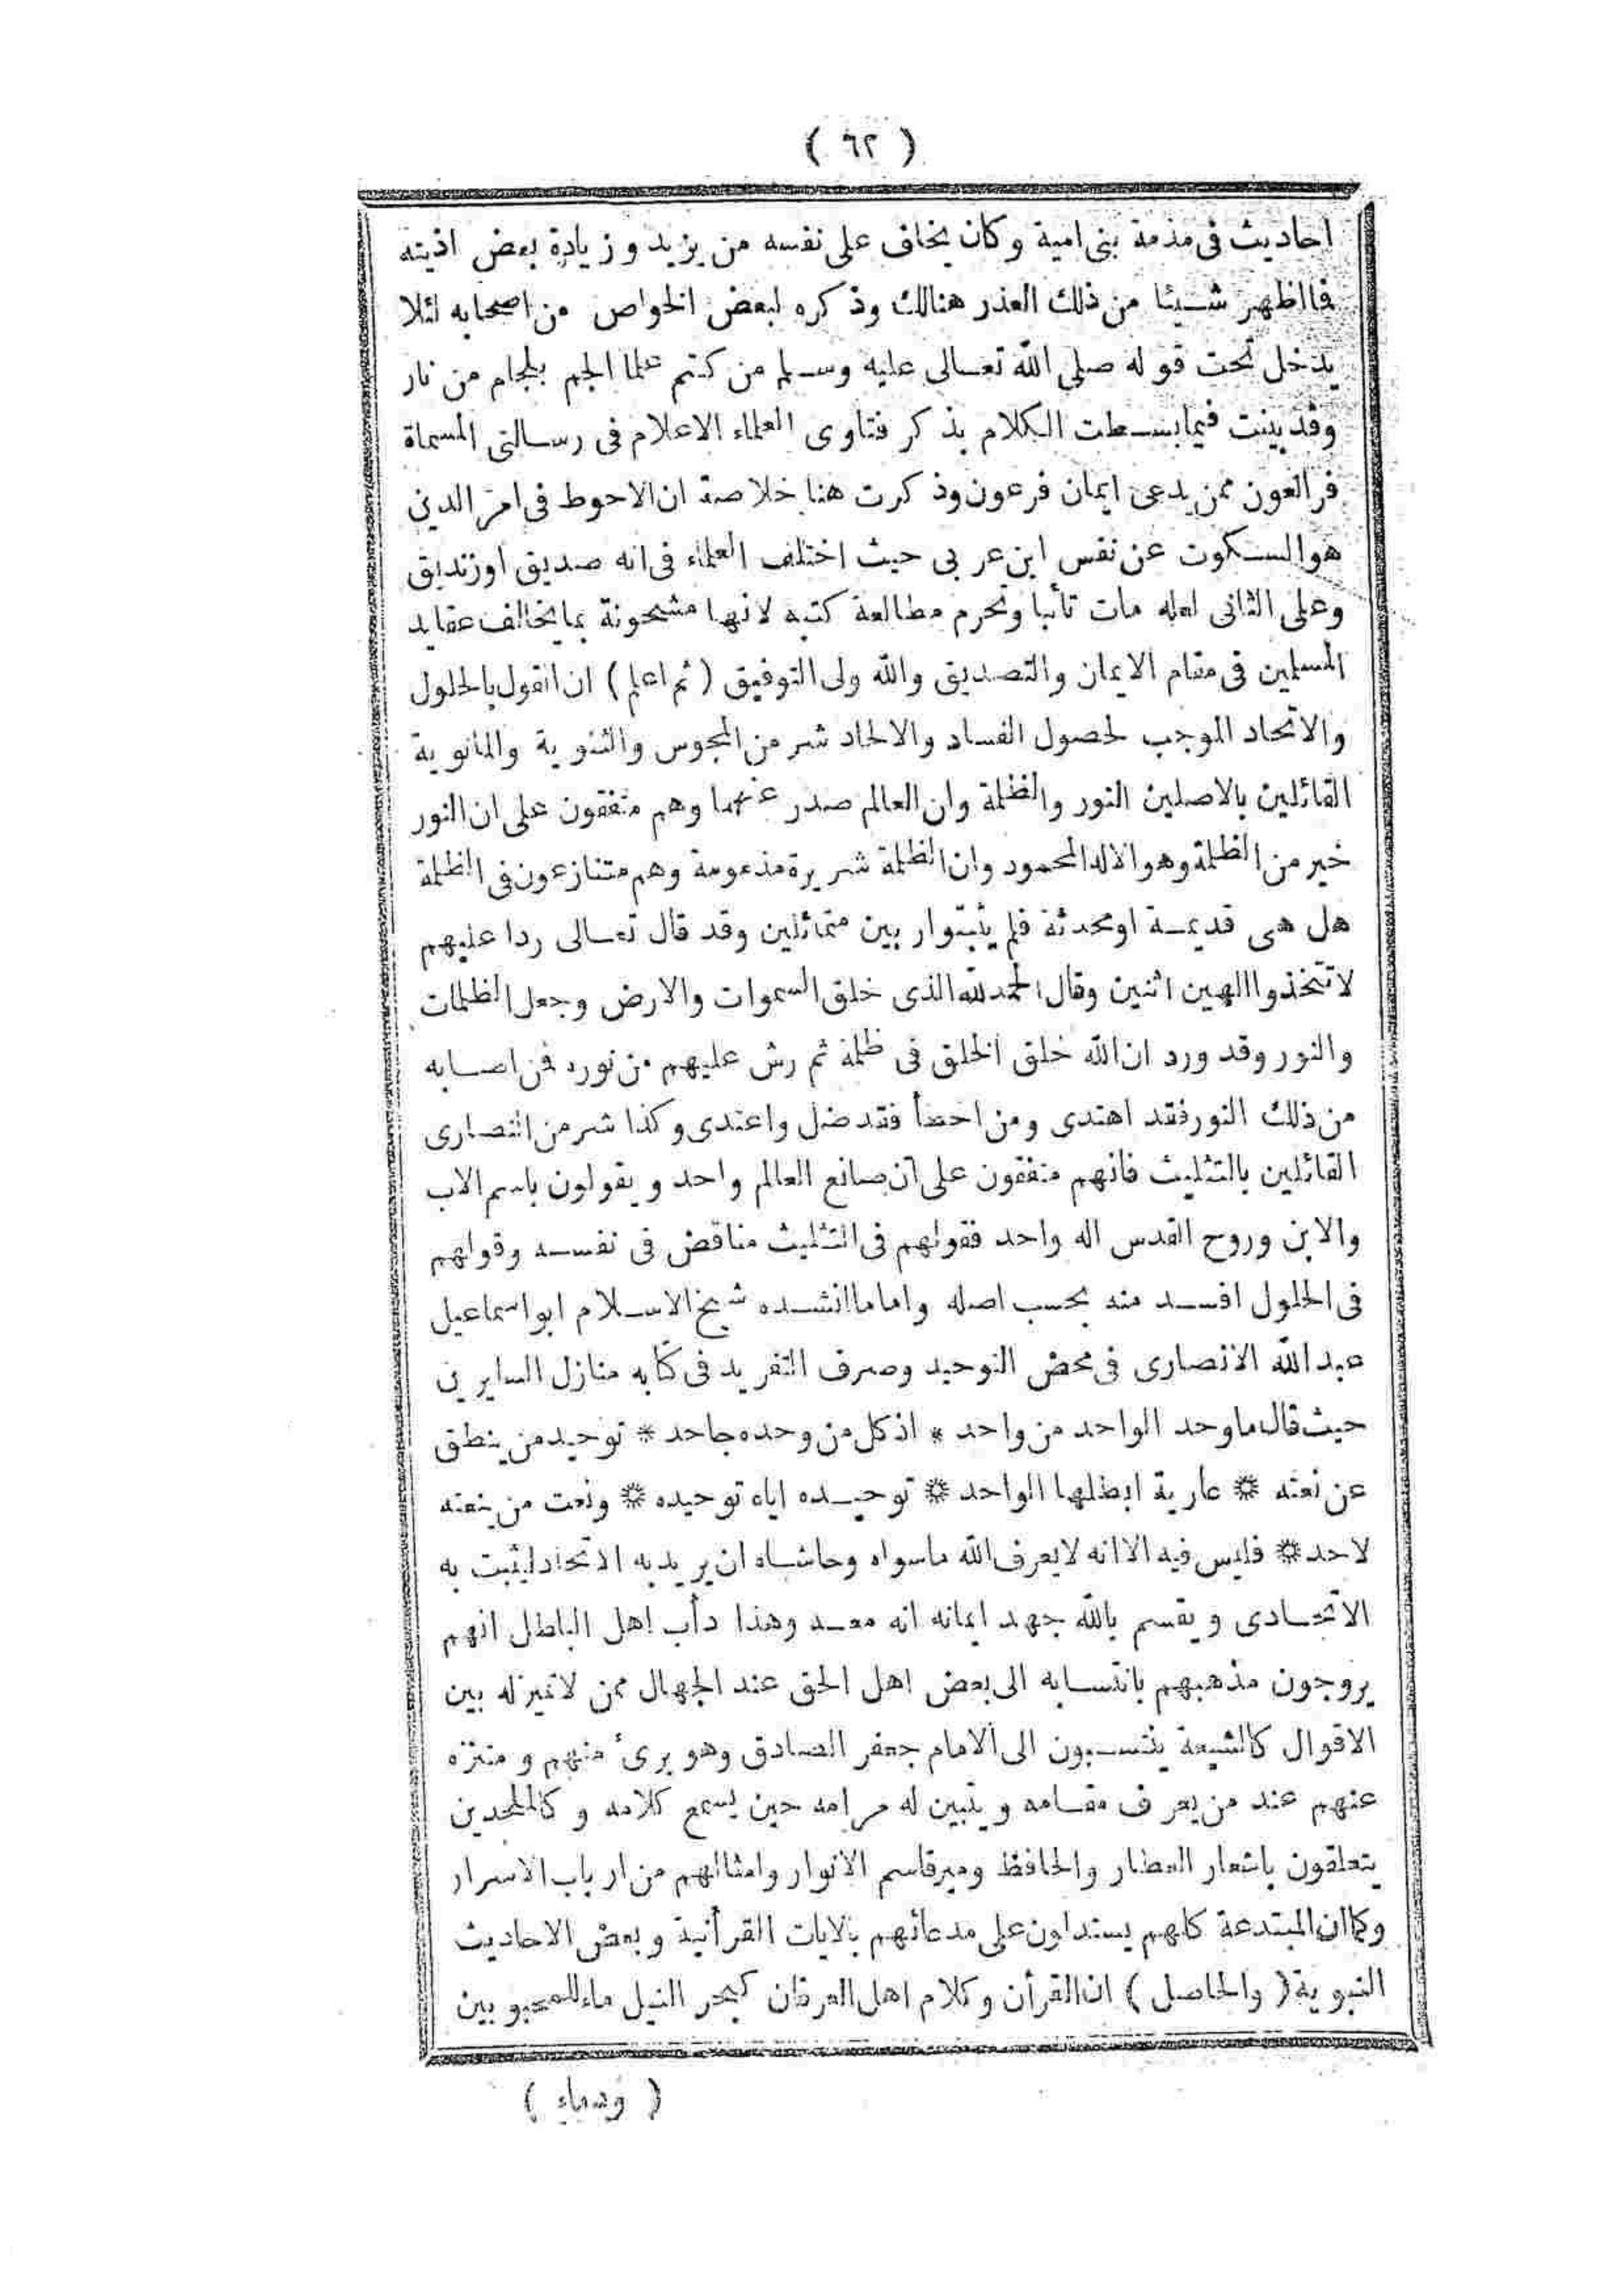 ( ٦٢ )
احاديث فى مذمة بنى امية وكان يخاف على نفسه من يزيد وزيادة بعض اذيته
فما اظهر شيئا من ذلك العذر هنالك وذكره لبعض الخواص من اصحابه لئلا
يدخل تحت قوله صلى الله تعالى عليه وسلم من كتم علما الجم بلجام من نار
وقد بينت فيما بسطت الكلام بذكر فتاوى العلماء الاعلام فى رسالتى المسماة
فر العون ممن يدعى ايمان فرعون وذكرت هنا خلاصة ان الاحوط فى امر الدين
هو السكوت عن نفس ابن عربى حيث اختلف العلماء فى انه صديق او زنديق
وعلى الثانى لعله مات تأئبا وتحرم مطالعة كتبه لانها مشحونة بما يخالف عقايد
المسلمين فى مقام الايمان والتصديق والله ولى التوفيق (ثم اعلم) ان القول بالحلول
والاتحاد الموجب لحصول الفساد والالحاد شر من المجوس والثنوية والمانوية
القائلين بالاصلين النور والظلمة وان العالم صدر عنهما وهم متفقون على ان النور
خير من الظلمة وهو الاله المحمود وان الظلمة شريرة مذمومة وهم متنازعون فى الظلمة
هل هى قديمة او محدثة فلم يثبتوا ربين متماثلين وقد قال تعالى ردا عليهم
لا تتخذوا الهين اثنين وقال الحمد لله الذى خلق السموات والارض وجعل الظلمات
والنور وقد ورد ان الله خلق الخلق فى ظلمة ثم رش عليهم من نوره فمن اصابه
من ذلك النور فقد اهتدى ومن اخطأ فقد ضل واعتدى وكذا شر من النصارى
القائلين بالتثليث فانهم متفقون على ان صانع العالم واحد ويقولون باسم الاب
والابن وروح القدس اله واحد فقولهم فى التثليث مناقض فى نفسه وقولهم
فى الحلول افسد منه بحسب اصله واما ما انشده شيخ الاسلام ابو اسماعيل
عبد الله الانصارى فى محض التوحيد وصرف التفريد فى كتابه منازل السايرين
حيث قال ما وحد الواحد من واحد * اذ كل من وحده جاحد * توحيد من ينطق
عن نعته * عارية ابطلها الواحد * توحيده اياه توحيده * ونعت من ينعته
لاحد * فليس فيه الا انه لا يعرف الله ما سواه وحاشاه ان يريد به الاتحاد ليثبت به
الاتحادى ويقسم بالله جهد ايمانه انه معه وهذا دأب اهل الباطل انهم
يروجون مذهبهم بانتسابه الى بعض اهل الحق عند الجهال ممن لا تميز له بين
الاقوال كالشيعة ينتسبون الى الامام جعفر الصادق وهو برئ منهم ومنتزه
عنهم عند من يعرف مقامه ويتبين له مرامه حين يسمع كلامه وكالملحدين
يتعلقون باشعار العطار والحافظ وميرقاسم الانوار وامثالهم من ارباب الاسرار
وكما ان المبتدعة كلهم يستدلون على مدعائهم بالايات القرأنية وبعض الاحاديث
النبوية (والحاصل) ان القرأن وكلام اهل العرفان كبحر النيل ماء للمحبوبين
( ودماء )